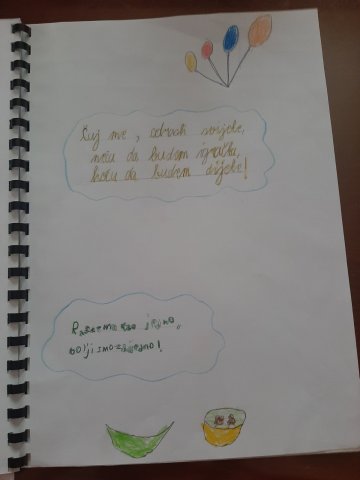 Čuj me, odrasli svijete,
neću da budem igračka,
hoću da budem dijete!
Rastemo kao jedno,
bolji smo zajedno!